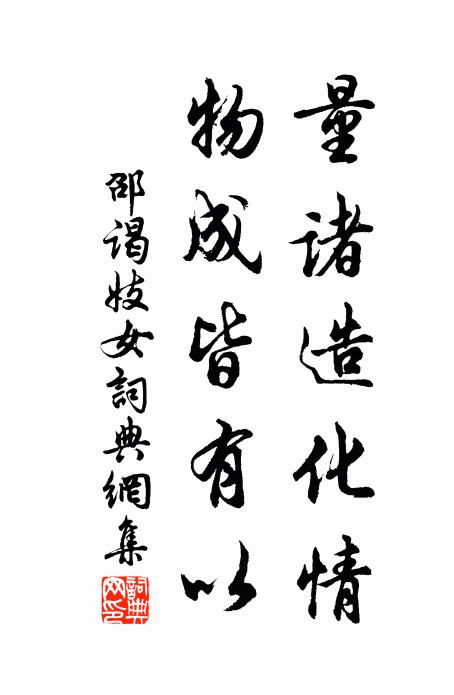 量諸造化情
物成皆有以
邵謁妓女詞典網集
詞典網印